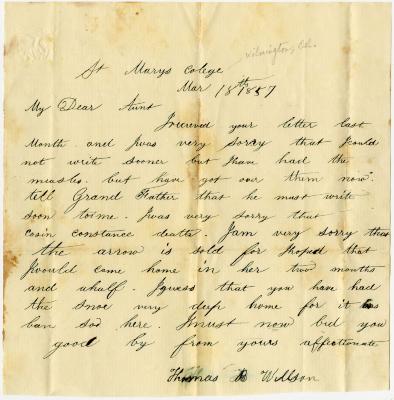 Wilmington, Del.
St Marys Colege
Mar 18th 1857
My Dear Aunt
I received your letter last
Month. and I was very sorry that I could
not write sooner but I have had the
measles. but have got over them now.
tell Grand Father that he must write
soon to me. I was very sorry that
cosin constance death. I am very sorry that
the arrow is sold for I hoped that
I would came home in her two months
and a half. I guess that you have had
the snoe very deep home for it has
ban soo here. I must now bid you
good by from yours affectionate
Thomas B Willson